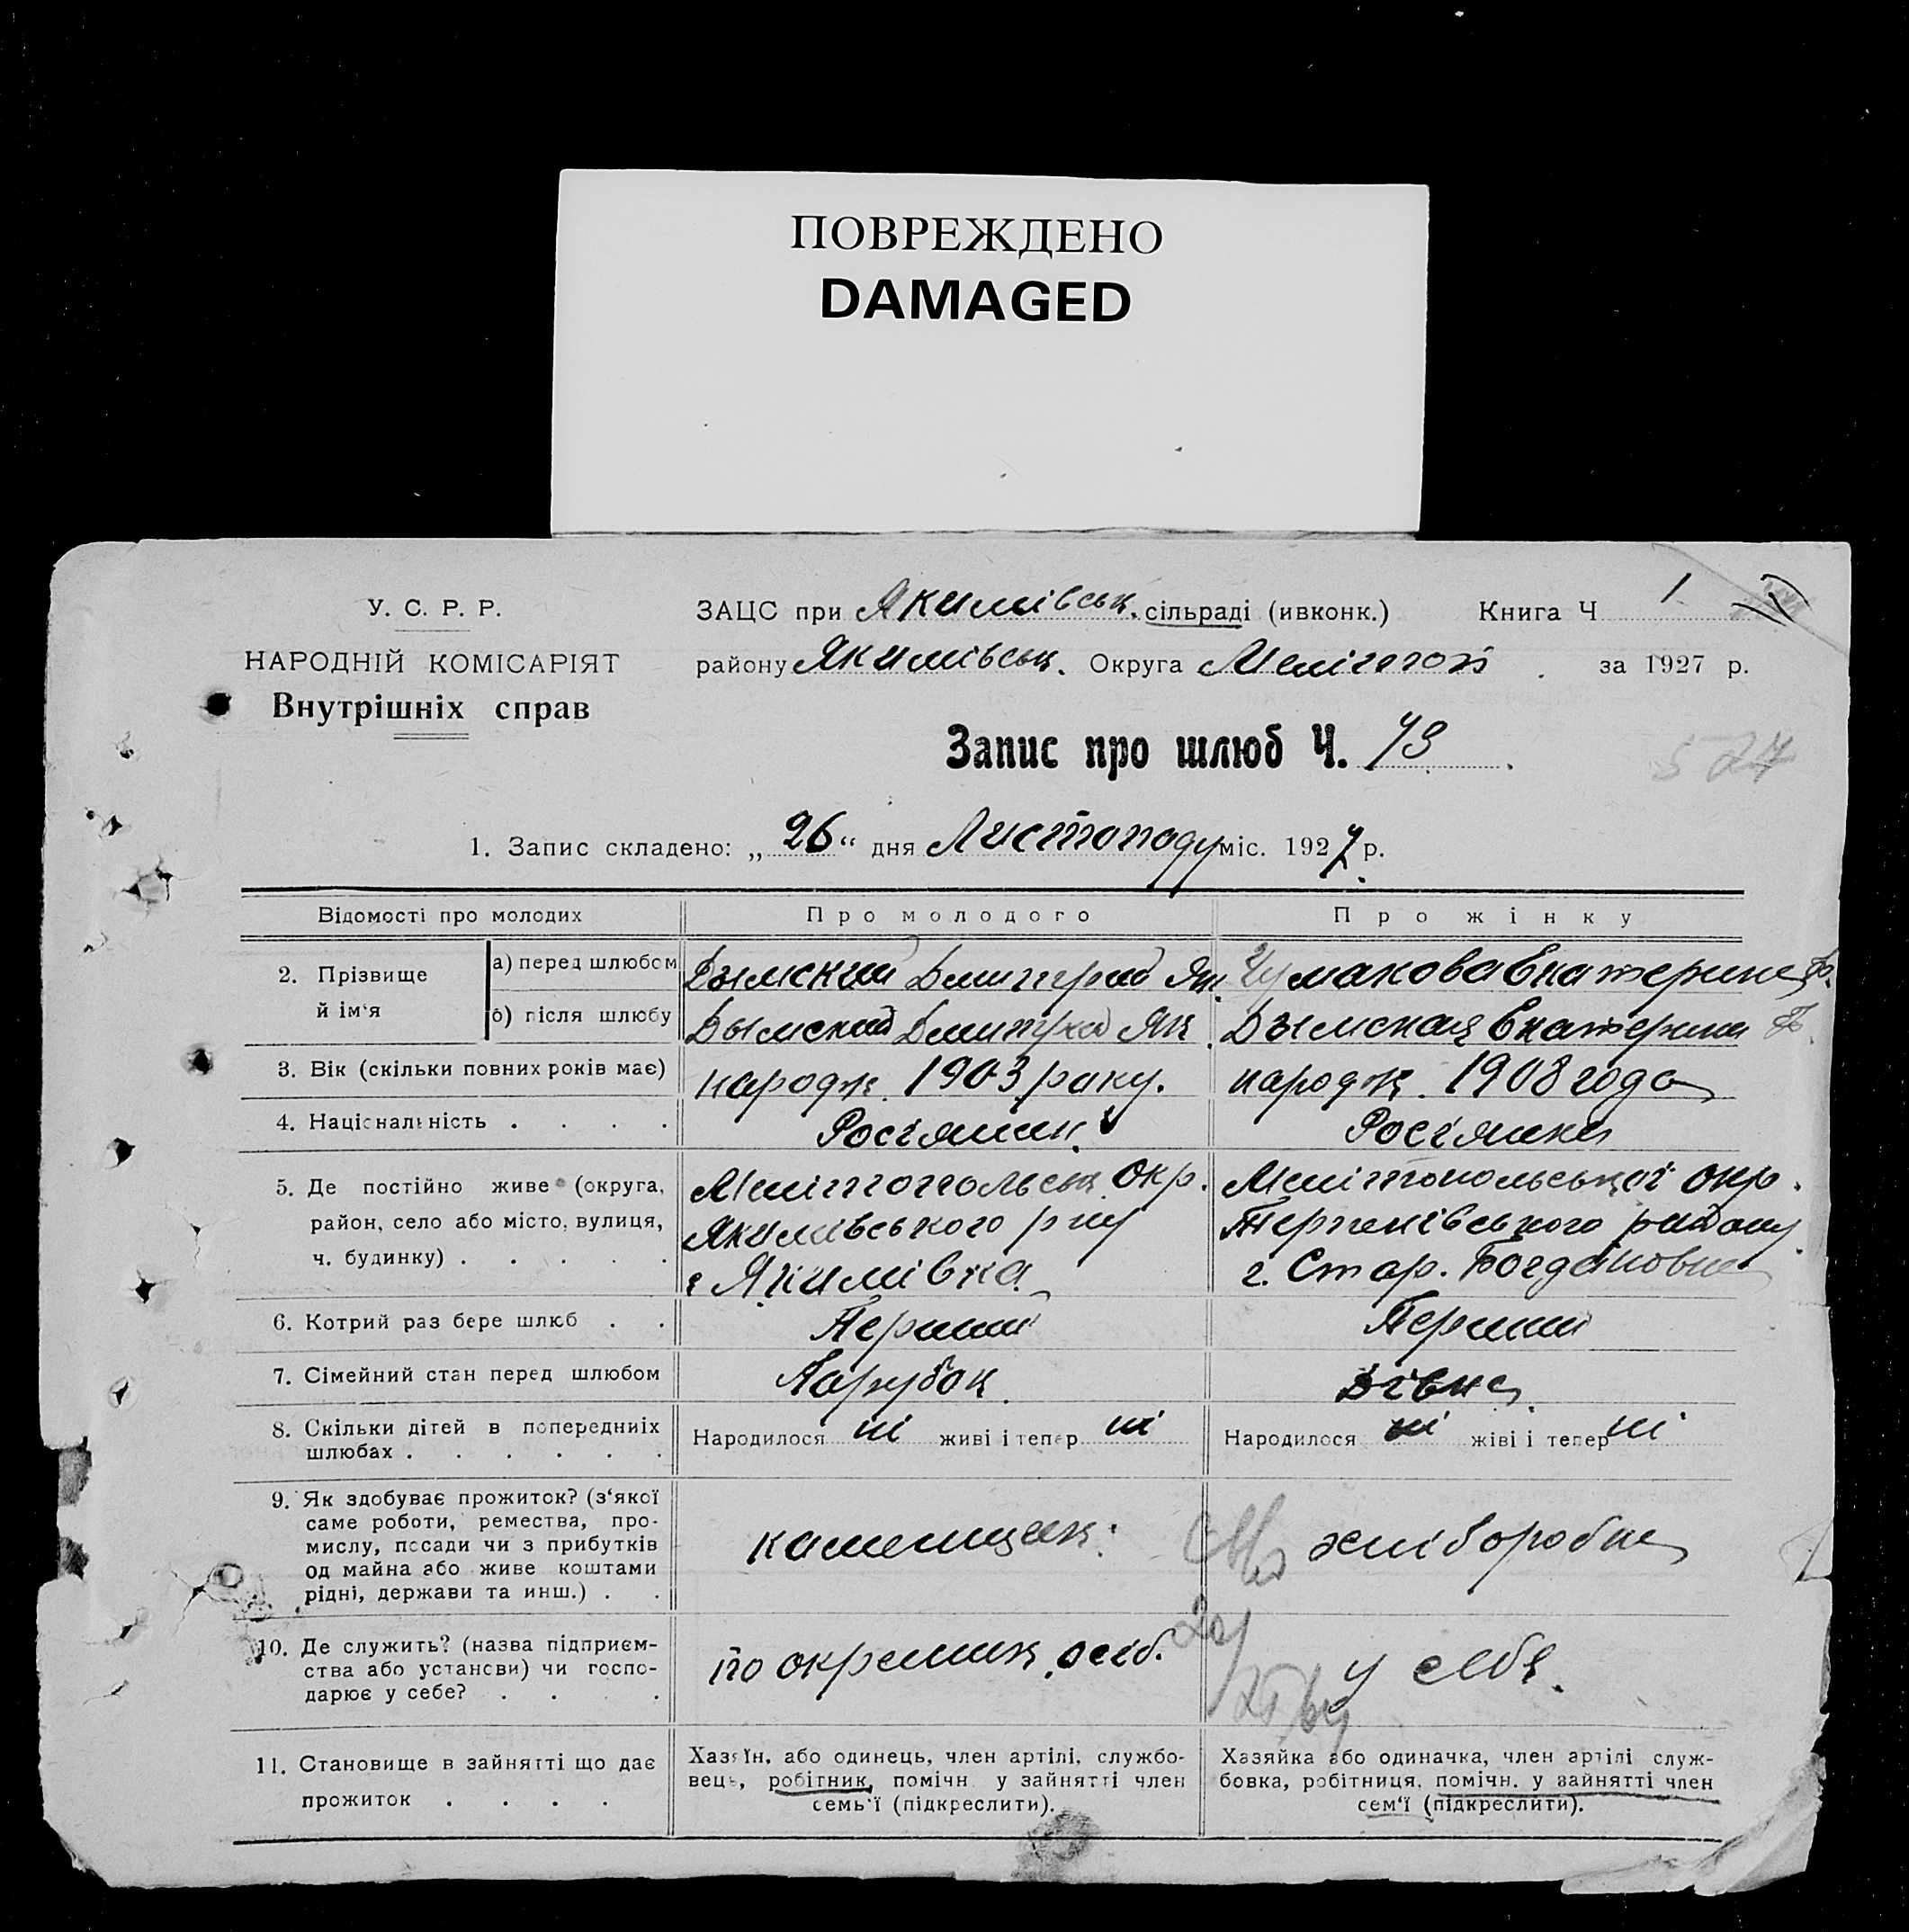 ПОВРЕЖДЕНО
DAMAGED
У. С. Р. Р.
НАРОДНІЙ КОМІСАРІЯТ
Внутрішніх справ
ЗАЦС при Якимівськ. сільраді (ивконк.) Книга Ч 1
району Якимівськ. Округа Меліт за 1927 р.
Запис про шлюб Ч. 73
527
1. Запис складено: „ 26 “ дня Листопаду міс. 1927 р.
Відомості про молодих Про молодого Про жінку
2. Прізвище й ім‘я
а) перед шлюбом Дымский Дмитрий Як. Чумакова Екатерина
б) після шлюбу Дымский Дмитрий Як. Дымская Екатерина
3. Вік (скільки повних років має) народж. 1903 року. народж. 1908 года
4. Національність . . . . Росіянин. Росіянка
5. Де постійно живе (округа, Мелітопольськ. окр. Мелітопольської окр.
район, село або місто, вулиця, Якимівського р-ну Терпенівського району
ч. будинку) . . . . . с Якимівка с. Стар. Богдановка
6. Котрий раз бере шлюб . . Перший Перший
7. Сімейний стан перед шлюбом Парубок Дівка
8. Скільки дітей в попередниіх Народилося ні живі і тепер ні Народилося ні жіві і тепер ні
шлюбах . . . . . .
9. Як здобуває прожиток? (з‘якої
саме роботи, ремества, про-
мислу, посади чи з прибутків каменщик. хліборобка
од майна або живе коштами
рідні, держави та инш.) . .
10. Де служить? (назва підприєм-
ства або установи) чи госпо- по окремих осіб. у себе.
дарює у себе? . . . .
11. Становище в зайнятті що дає
прожиток . . . .
Хазяїн, або одинець, член артілі, службо-
вець, робітник, помічн у зайнятті член
семь‘ї (підкреслити).
Хазяйка або одиначка, член артілі служ-
бовка, робітниця, помічн. у зайнятті член
сем‘ї (підкреслити).